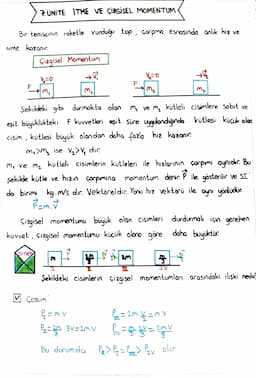 7.ÜNİTE İTME VE ÇİZGİSEL MOMENTUM
Bir tenisçinin raketle vurduğu top, çarpma esnasında anlık hız ve
ivme kazanır.
Çizgisel Momentum
V₁=0 V₁ V₂=0 V₂
F m₁ m₁ F m₂ m₂
Şekildeki gibi durmakta olan m₁ ve m₂ kütleli cisimlere sabit ve
eşit büyüklükteki F kuvvetleri eşit süre uygulandığında kütlesi küçük olan
cisim, kütlesi büyük olandan daha fazla hız kazanır.
m₁>m₂ ise V₂>V₁ dir.
m₁ ve m₂ kütleli cisimlerin kütleleri ile hızlarının çarpımı aynıdır. Bu
şekilde kütle ve hızın çarpımına momentum denir. P ile gösterilir ve SI
da birimi kg.m/s dir. Vektöreldir. Yönü hız vektörü ile aynı yöndedir.
P=m.V
Çizgisel momentumu büyük olan cisimleri durdurmak için gereken
kuvvet, çizgisel momentumu küçük olana göre daha büyüktür.
Şekildeki cisimlerin çizgisel momentumları arasındaki ilişki nedir?
Çözüm:
P₁=m.V
Bu durumda
olur.